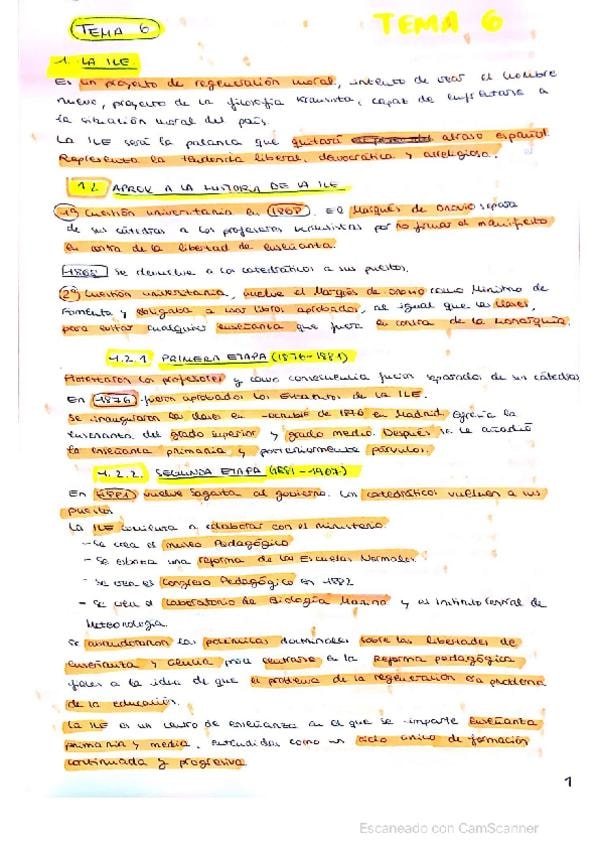 TEMA 6
TEMA 6
1. LA ILE
Es un proyecto de regeneración moral, intento de crear el hombre
nuevo, proyecto de la filosofía krausista, capaz de enfrentarse a
la situación moral del país.
La ILE será la palanca que quitará atraso español.
Representa la tendencia liberal, democrática y arreligiosa.
1.2 APROX A LA HISTORIA DE LA ILE
1ª Cuestión universitaria en 1868. El Marqués de Orovio separa
de sus cátedras a los profesores krausistas por no firmar el manifiesto
en contra de la libertad de enseñanza.
1868 se devuelve a los catedráticos a sus puestos.
2ª Cuestión universitaria, vuelve el Marqués de Orovio como Ministro de
Fomento y obligaba a usar libros aprobados, al igual que las clases,
para evitar cualquier enseñanza que fuera en contra de la Monarquía.
1.2.1 PRIMERA ETAPA (1876-1881)
los profesores y como consecuencia fueron separados de sus cátedras
En 1876 fueron aprobados los Estatutos de la ILE.
Se inauguraron las clases en octubre de 1876 en Madrid. Ejercía la
enseñanza del grado superior y grado medio. Después se le añadió
la enseñanza primaria y posteriormente párvulos.
1.2.2. SEGUNDA ETAPA (1881-1907)
En 1881 vuelve Sagasta al gobierno. Los catedráticos vuelven a sus
puestos
La ILE comienza a colaborar con el ministerio.
- Se crea el museo Pedagógico
- Se esboza una reforma de las Escuelas Normales.
- Se crea el Congreso Pedagógico en 1882
- Se crea el Laboratorio de Biología Marina y el Instituto Central de
Meteorología.
Se abandonaron las polémicas doctrinales sobre las libertades de
enseñanza y ciencia para centrarse en la Reforma pedagógica
fieles a la idea de que el problema de la regeneración era problema
de la educación.
La ILE es un centro de enseñanza en el que se imparte enseñanza
primaria y media, entendidas como un ciclo único de formación
continuada y progresiva
1
Escaneado con CamScanner